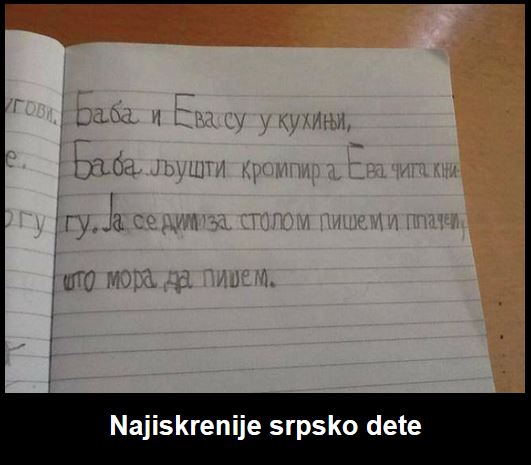 Баба и Ева су у кухињи,
Баба љушти кромпир а Ева чига књи-
гу. Ја седим за столом пишем и плачем,
што мора да пишем.
Najiskrenije srpsko dete